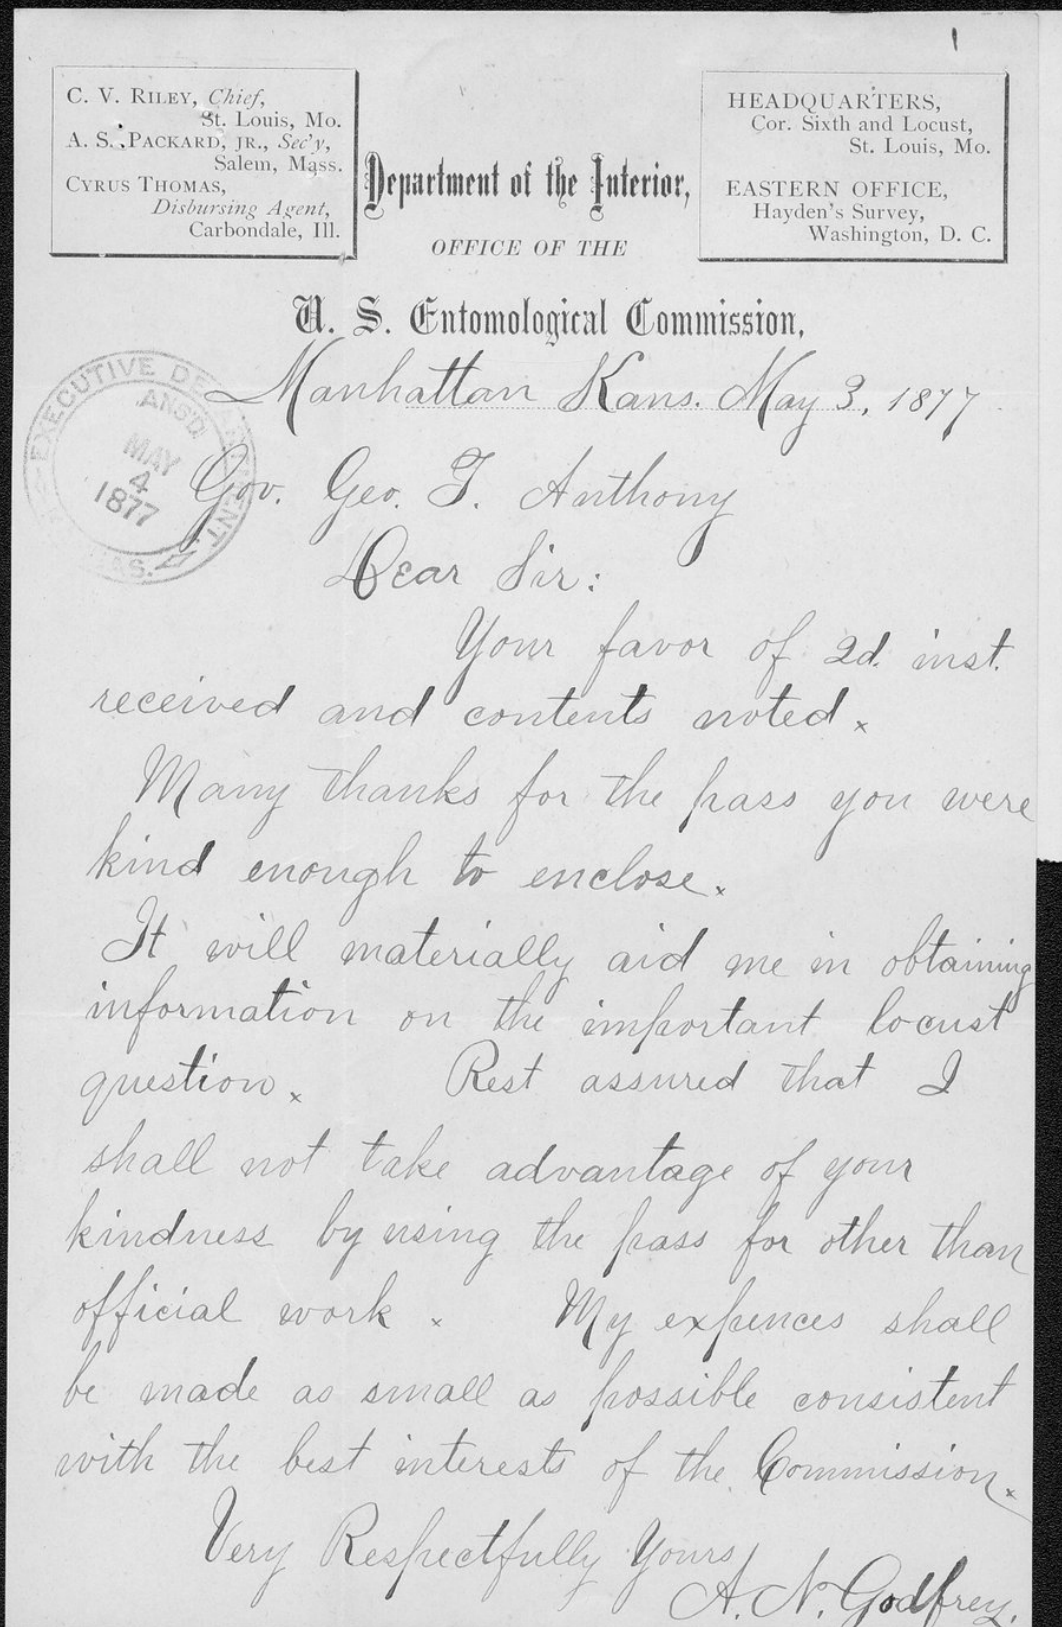 C. V. RILEY, Chief,
St. Louis, Mo.
A. S. PACKARD, JR., Sec'y,
Salem, Mass.
CYRUS THOMAS,
Disbursing Agent,
Carbondale, Ill.
Department of the Interior,
OFFICE OF THE
HEADQUARTERS,
Cor. Sixth and Locust,
St. Louis, Mo.
EASTERN OFFICE,
Hayden's Survey,
Washington, D. C.
U. S. Entomological Commission,
Manhattan Kans. May 3, 1877
EXECUTIVE DEPARTMENT
MAY
4
1877
Gov. Geo. T. Anthony
Dear Sir:
Your favor of 2d. inst.
received and contents noted.
Many thanks for the pass you were
kind enough to enclose.
It will materially aid me in obtaining
information on the important locust
question. Rest assured that I
shall not take advantage of your
kindness by using the pass for other than
official work. My expences shall
be made as small as possible consistent
with the best interests of the Commission.
Very Respectfully Yours,
A. N. Godfrey.